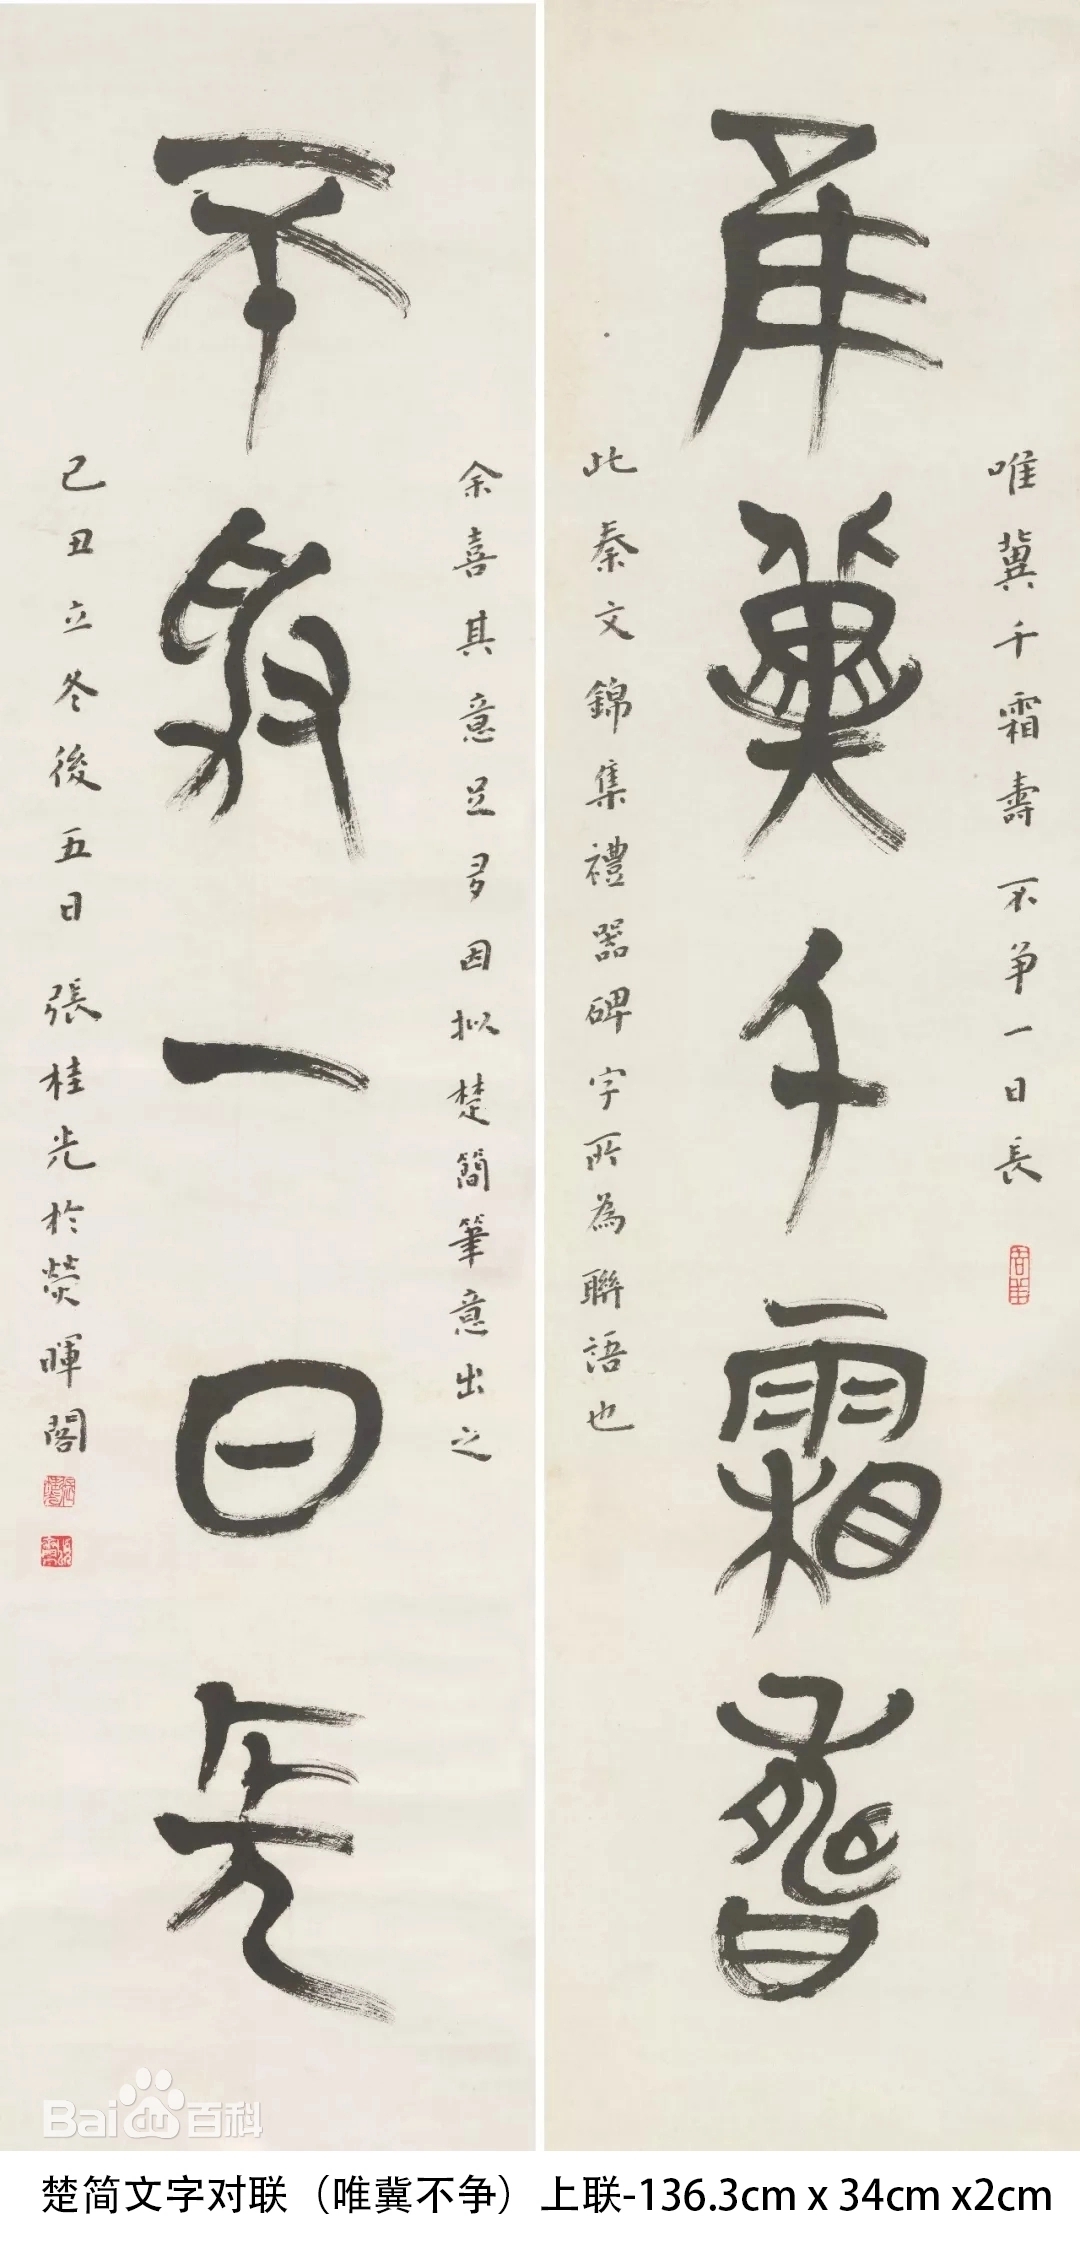 唯冀千霜壽
唯冀千霜壽不争一日長
此秦文錦集禮器碑字所為聯語也
不争一日長
余喜其意足多因拟楚簡筆意出之
己丑立冬後五日張桂光於熒暉閣
Bai百科
楚简文字对联（唯冀不争）上联-136.3cm x 34cm x2cm